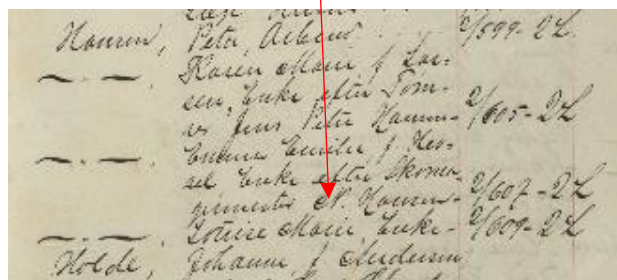 Hansen, Peter, Arbeds. 2/599-2L
—"— Karen Marie f. Lar-
sen, Enke efter Tøm-
rer Jens Peter Hansen- 2/605-2L
—"— Emma Emilie f.
Enke efter Skoma-
germester N. Hansen- 2/607-2L
—"— Louise Marie Enke- 2/609-2L
Holde, Johanne f. Andersen